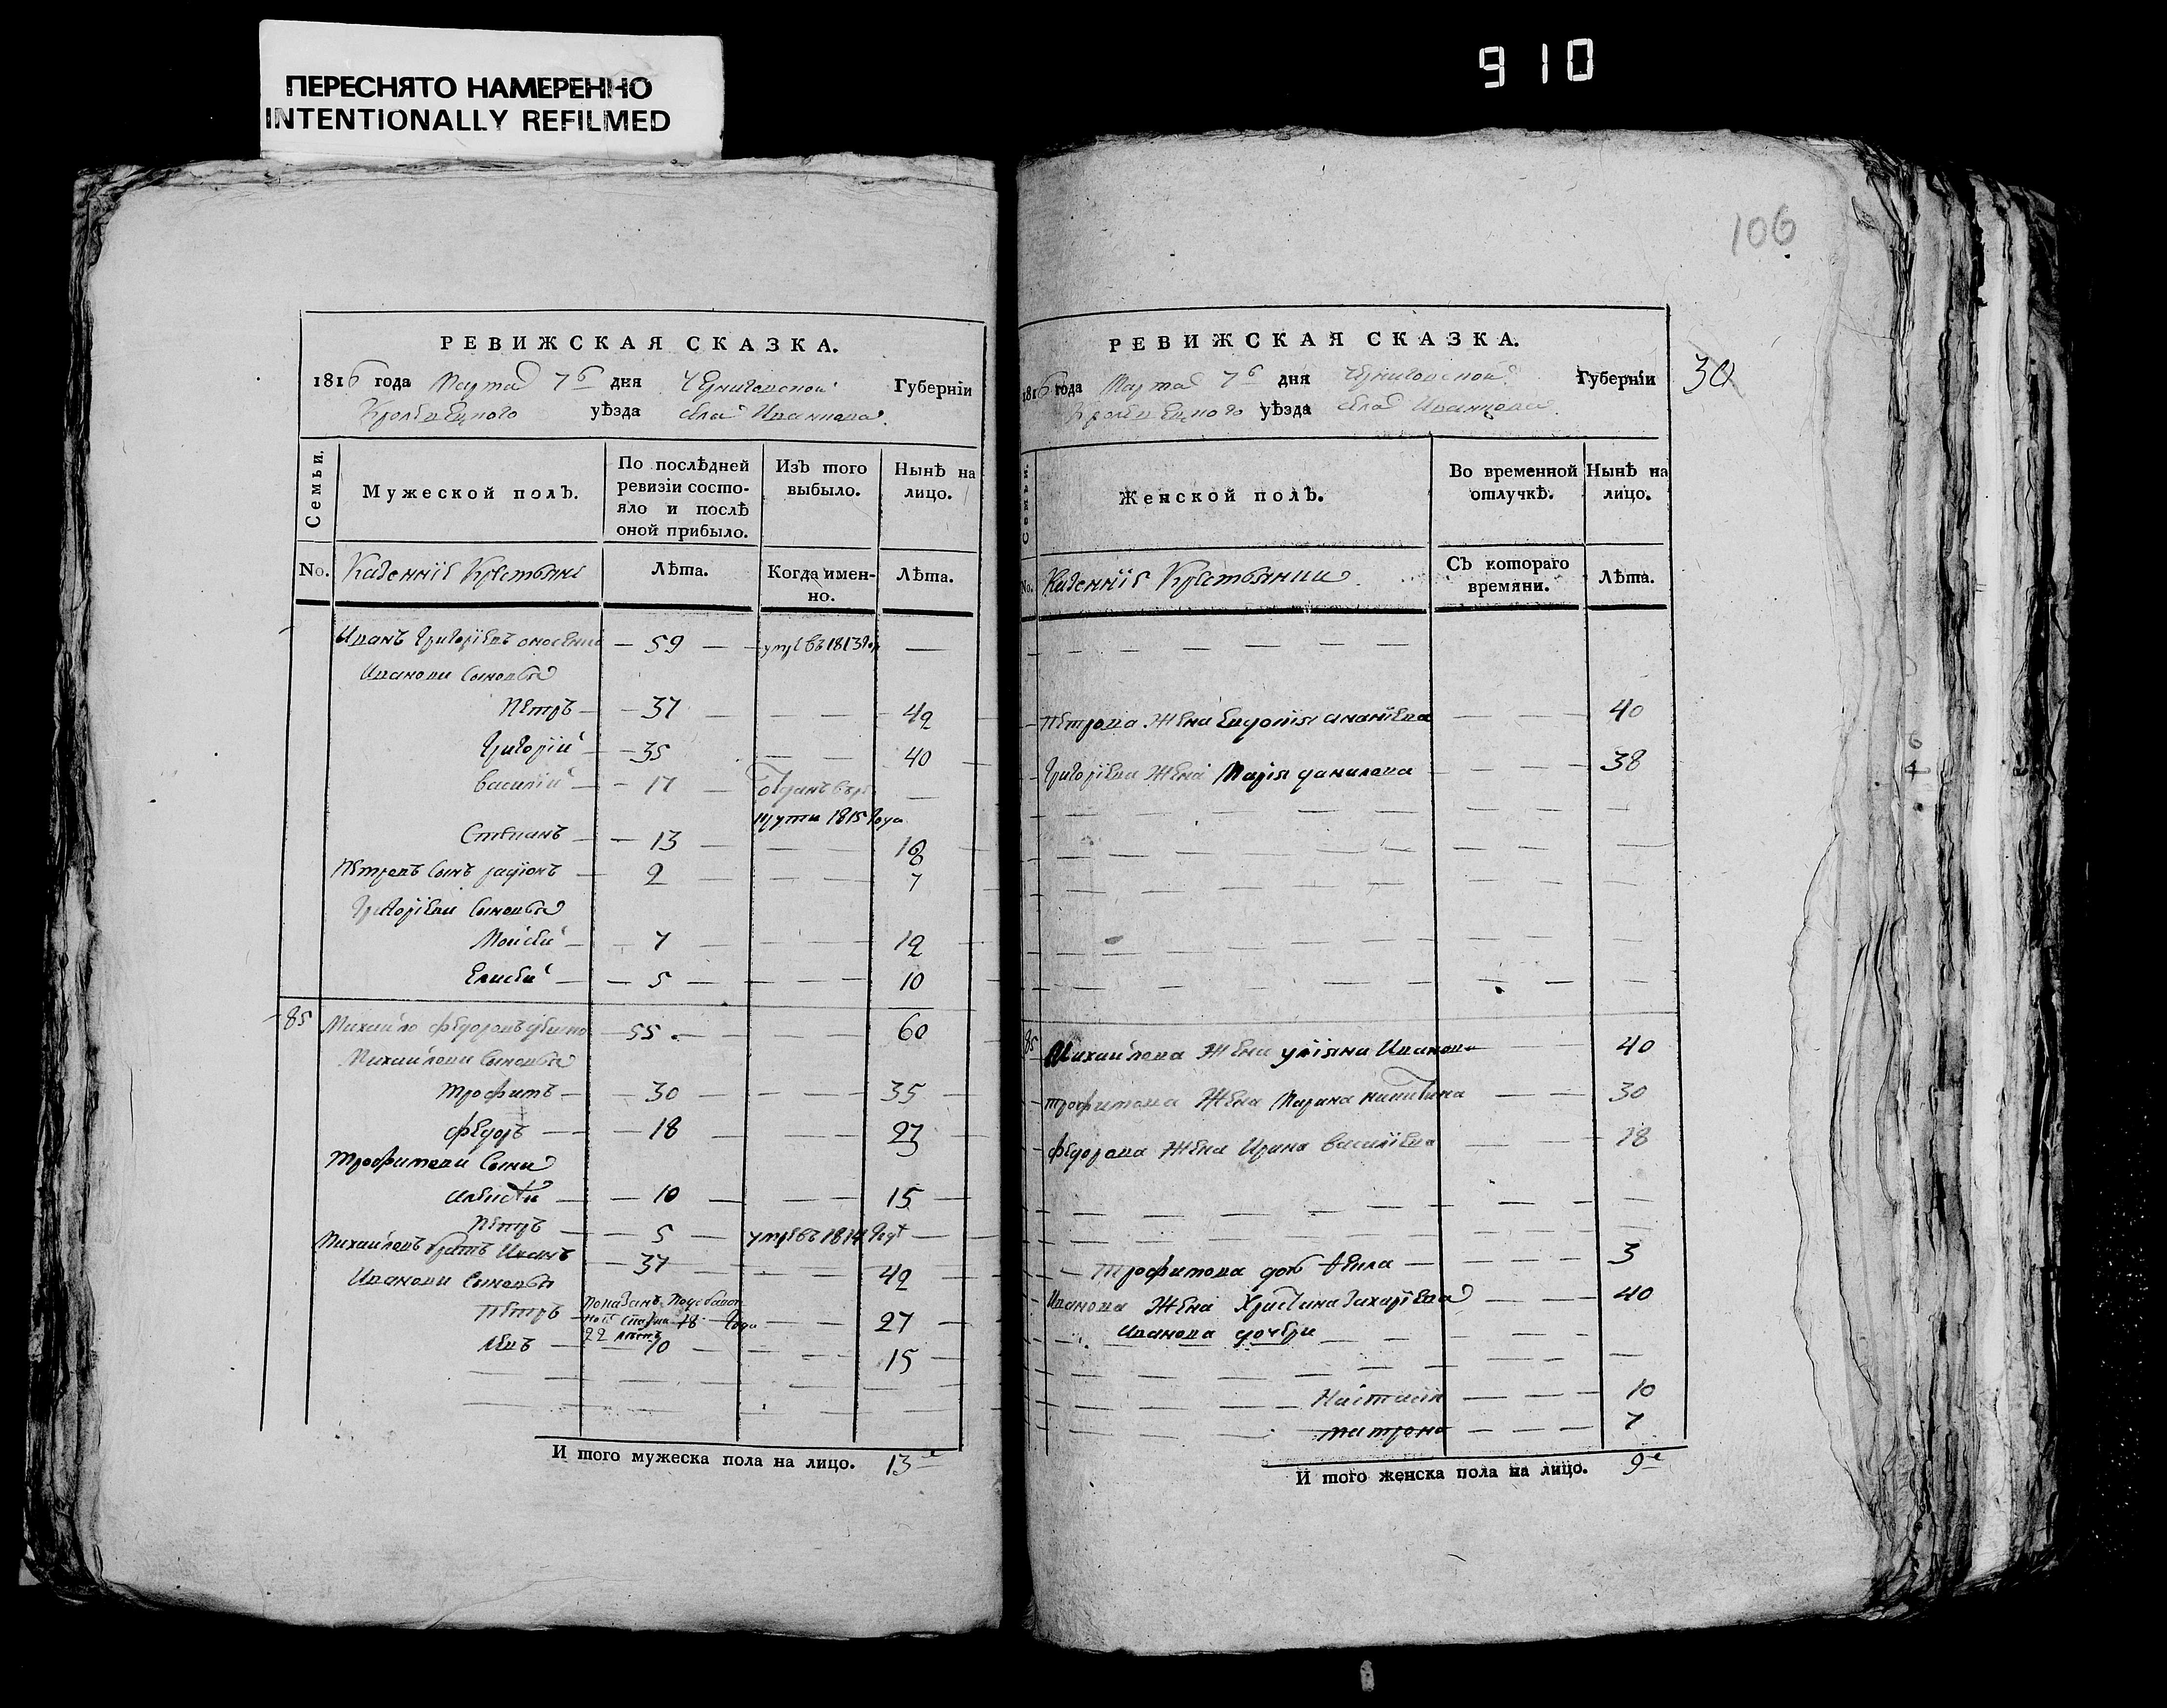 ПЕРЕСНЯТО НАМЕРЕННО
INTENTIONALLY REFILMED
910
106
30
РЕВИЖСКАЯ СКАЗКА.
1816 года Марта 7 дня Черниговской Губерніи
Кролевецкого уѣзда села Иванкова.
Семьи.
Мужеской полъ.
По послѣдней ревизіи состояло и послѣ оной прибыло.
Изъ того выбыло.
Нынѣ на лицо.
No. Казенніе Крестьяне
Лѣта.
Когда именно.
Лѣта.
Иванъ Григоріевъ — 59 — умре въ 1813 —
Иванови сыновья
Петръ — 37 — 42
Григорій — 35 — 40
Василій — 17 — отданъ въ рекруты 1815 года —
Степанъ — 13 — 18
Петровъ сынъ Радіонъ — 2 — 7
Григоріеви сыновья
Мойсей — 7 — 12
Елисей — 5 — 10
85 Михайло Федоровъ — 55 — 60
Михайлови сыновья
Трофимъ — 30 — 35
Федоръ — 18 — 23
Трофимови сыни
Алексей — 10 — 15
Петръ — 5 — умре въ 1814 годе —
Михайловъ братъ Иванъ — 37 — 42
Иванови сыновья
Петръ — 27
22 летъ
Левъ — 10 — 15
И того мужеска пола на лицо. 13
РЕВИЖСКАЯ СКАЗКА.
1816 года Марта 7 дня Черниговской Губерніи
Кролевецкого уѣзда села Иванкова.
Семьи.
Женской полъ.
Во временной отлучкѣ.
Нынѣ на лицо.
No. Казенніе Крестьянки
Съ котораго времяни.
Лѣта.
Петрова жена Евдокія Ананіева — 40
Григоріева жена Марія Данилова — 38
85 Михайлова жена Уліяна Иванова — 40
Трофимова жена Марина Никитина — 30
Федорова жена Ирина Василіева — 18
Трофимова дочь Фекла — 3
Иванова жена Христина Захаріева — 40
Иванова дочери
Настасія — 10
Матрона — 7
И того женска пола на лицо. 9